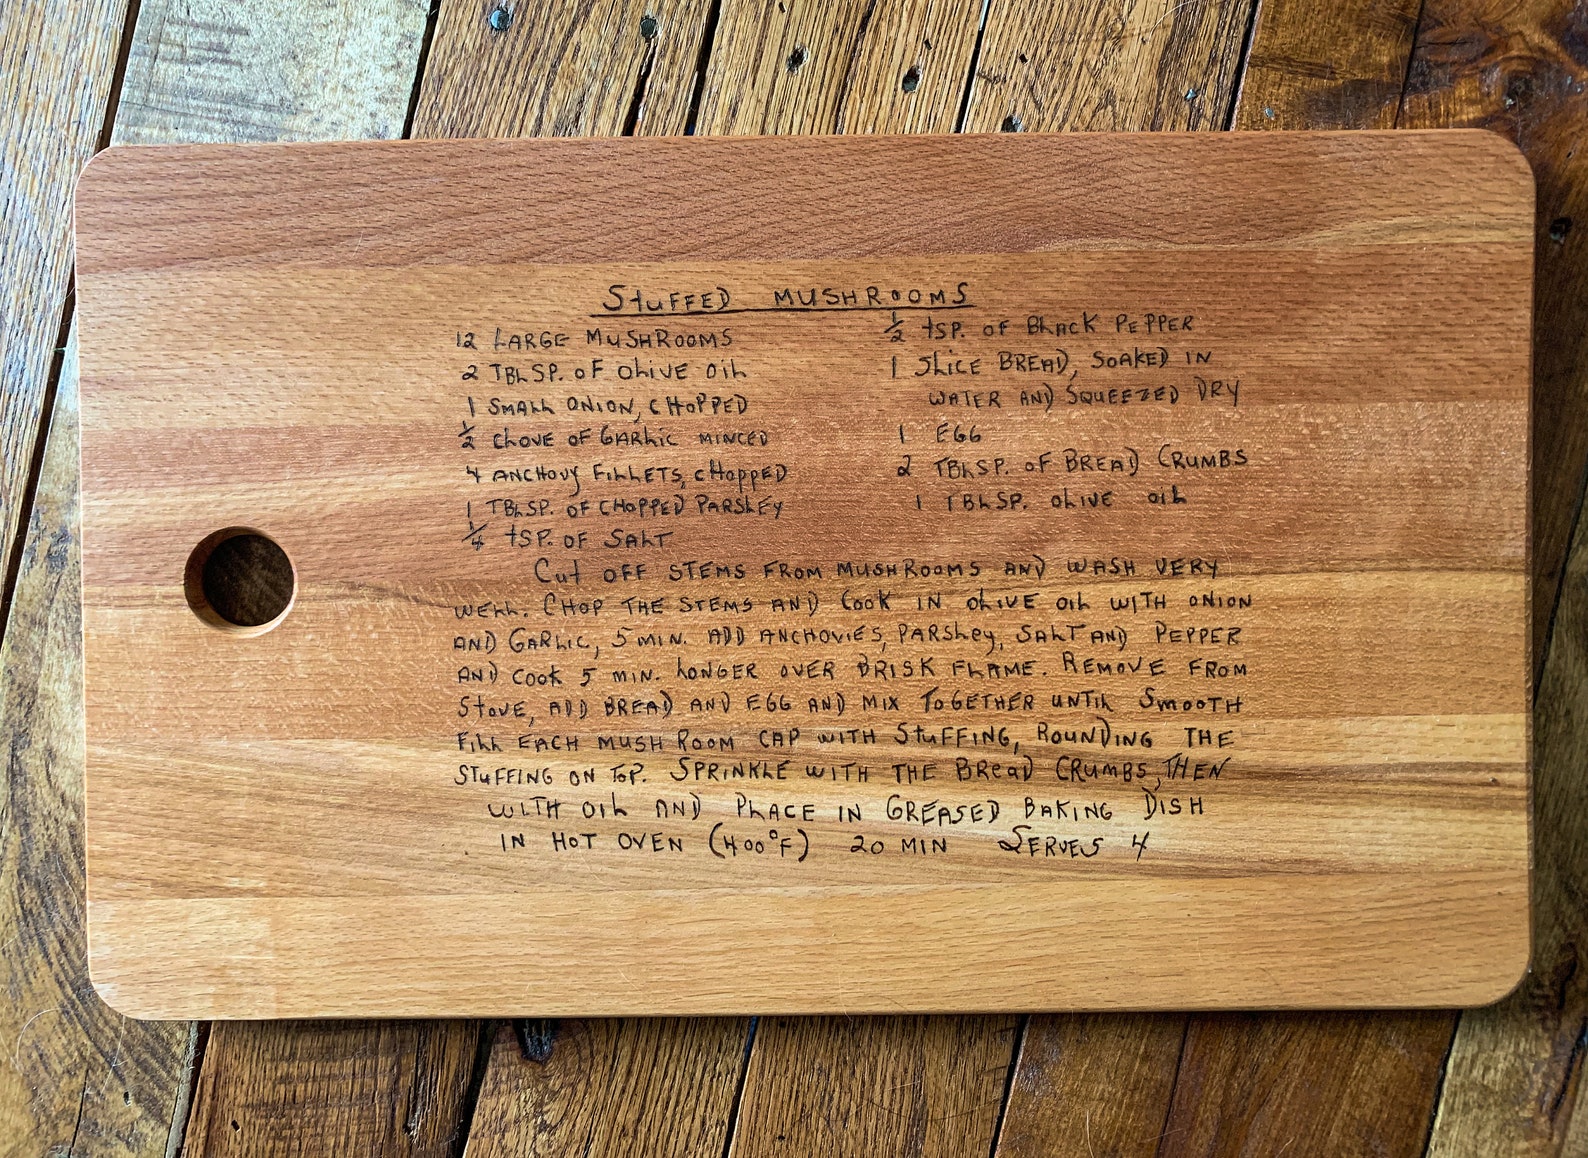 STUFFED MUSHROOMS
12 LARGE MUSHROOMS
2 TBLSP. OF OLIVE OIL
1 SMALL ONION, CHOPPED
1/2 CLOVE OF GARLIC MINCED
4 ANCHOVY FILLETS, CHOPPED
1 TBLSP. OF CHOPPED PARSLEY
1/4 tSP. OF SALT
1/2 tSP. OF BLACK PEPPER
1 SLICE BREAD, SOAKED IN
WATER AND SQUEEZED DRY
1 EGG
2 TBLSP. OF BREAD CRUMBS
1 TBLSP. OLIVE OIL
CUT OFF STEMS FROM MUSHROOMS AND WASH VERY
WELL. CHOP THE STEMS AND COOK IN OLIVE OIL WITH ONION
AND GARLIC, 5 MIN. ADD ANCHOVIES, PARSLEY, SALT AND PEPPER
AND COOK 5 MIN. LONGER OVER BRISK FLAME. REMOVE FROM
STOVE, ADD BREAD AND EGG AND MIX TOGETHER UNTIL SMOOTH
FILL EACH MUSHROOM CAP WITH STUFFING, ROUNDING THE
STUFFING ON TOP. SPRINKLE WITH THE BREAD CRUMBS, THEN
WITH OIL AND PLACE IN GREASED BAKING DISH
IN HOT OVEN (400°F) 20 MIN SERVES 4